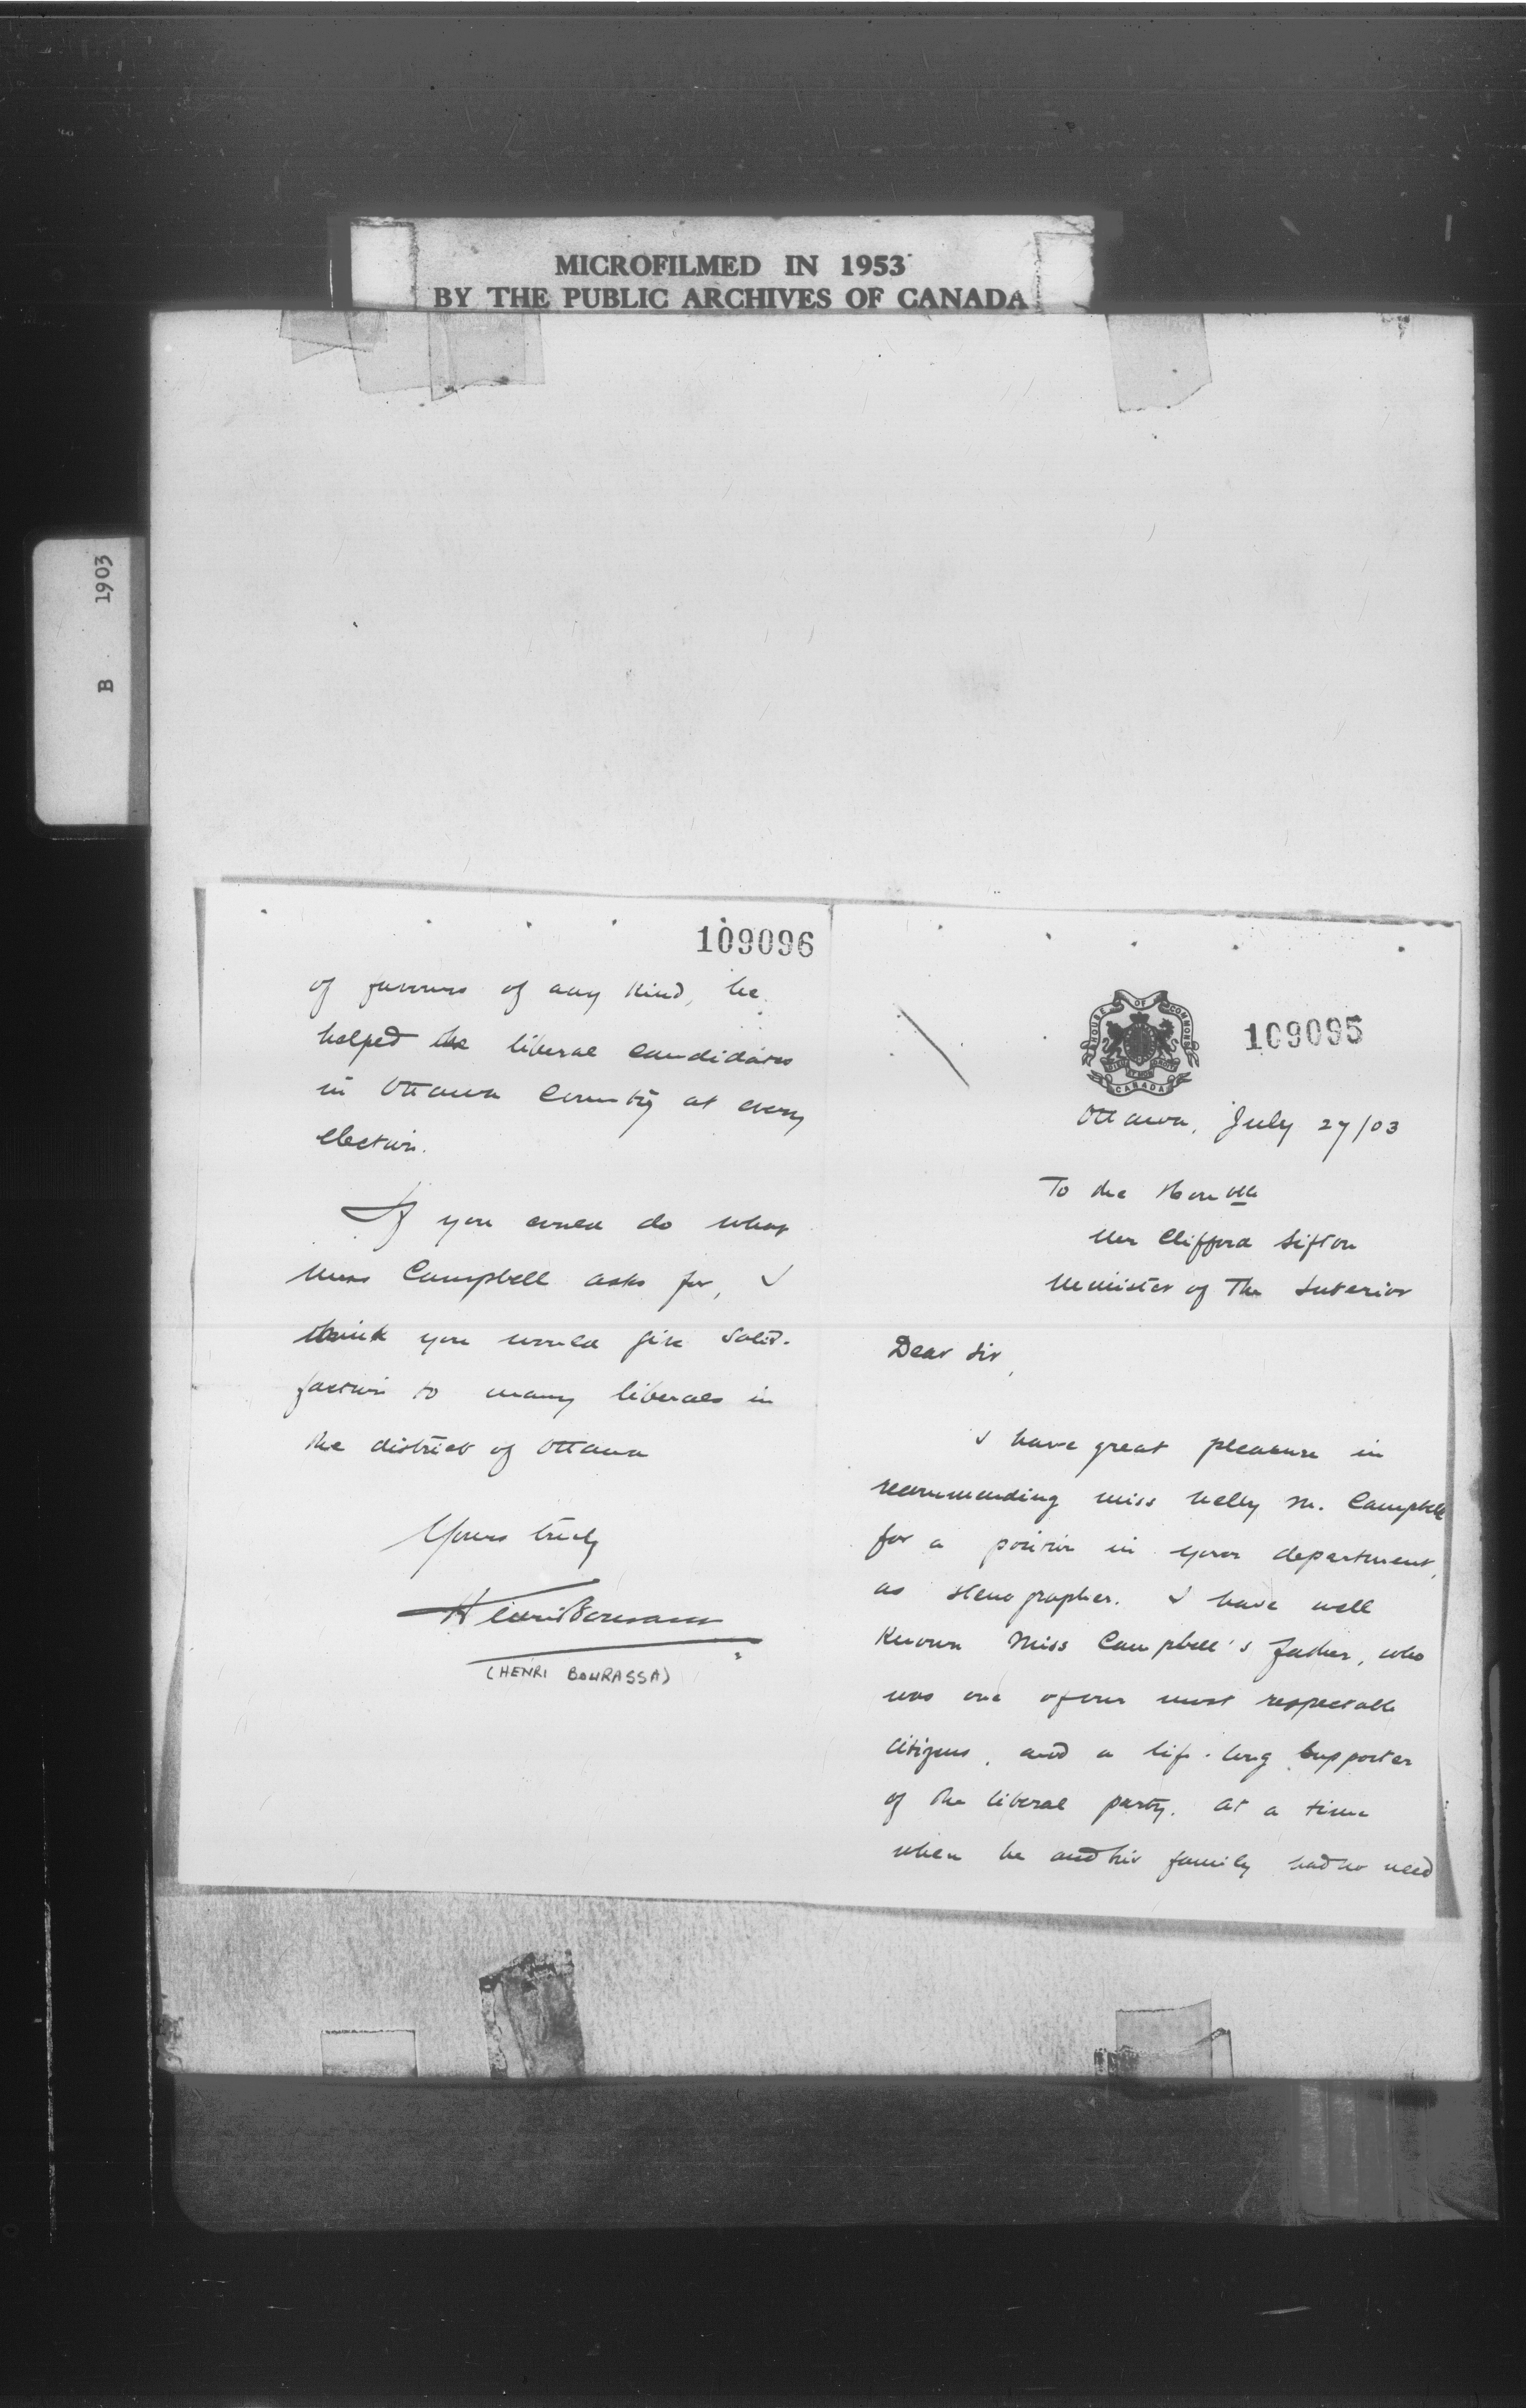 MICROFILMED IN 1953
BY THE PUBLIC ARCHIVES OF CANADA
B 1903
109095
HOUSE OF COMMONS
CANADA
Ottawa, July 27/03
To the Honble
Mr Clifford Sifton
Minister of The Interior
Dear Sir,
I have great pleasure in
recommending miss Nelly M. Campbell
for a position in your department,
as stenographer. I have well
Known Miss Campbell's father, who
was one of our most respectable
citizens, and a life-long supporter
of the liberal party. At a time
when he and his family had no need
109096
of favours of any kind, he
helped the liberal candidates
in Ottawa County at every
election.
If you could do what
Miss Campbell asks for, I
think you would give satis-
faction to many liberals in
the district of Ottawa
Yours truly
Henri Bourassa
(HENRI BOURASSA)